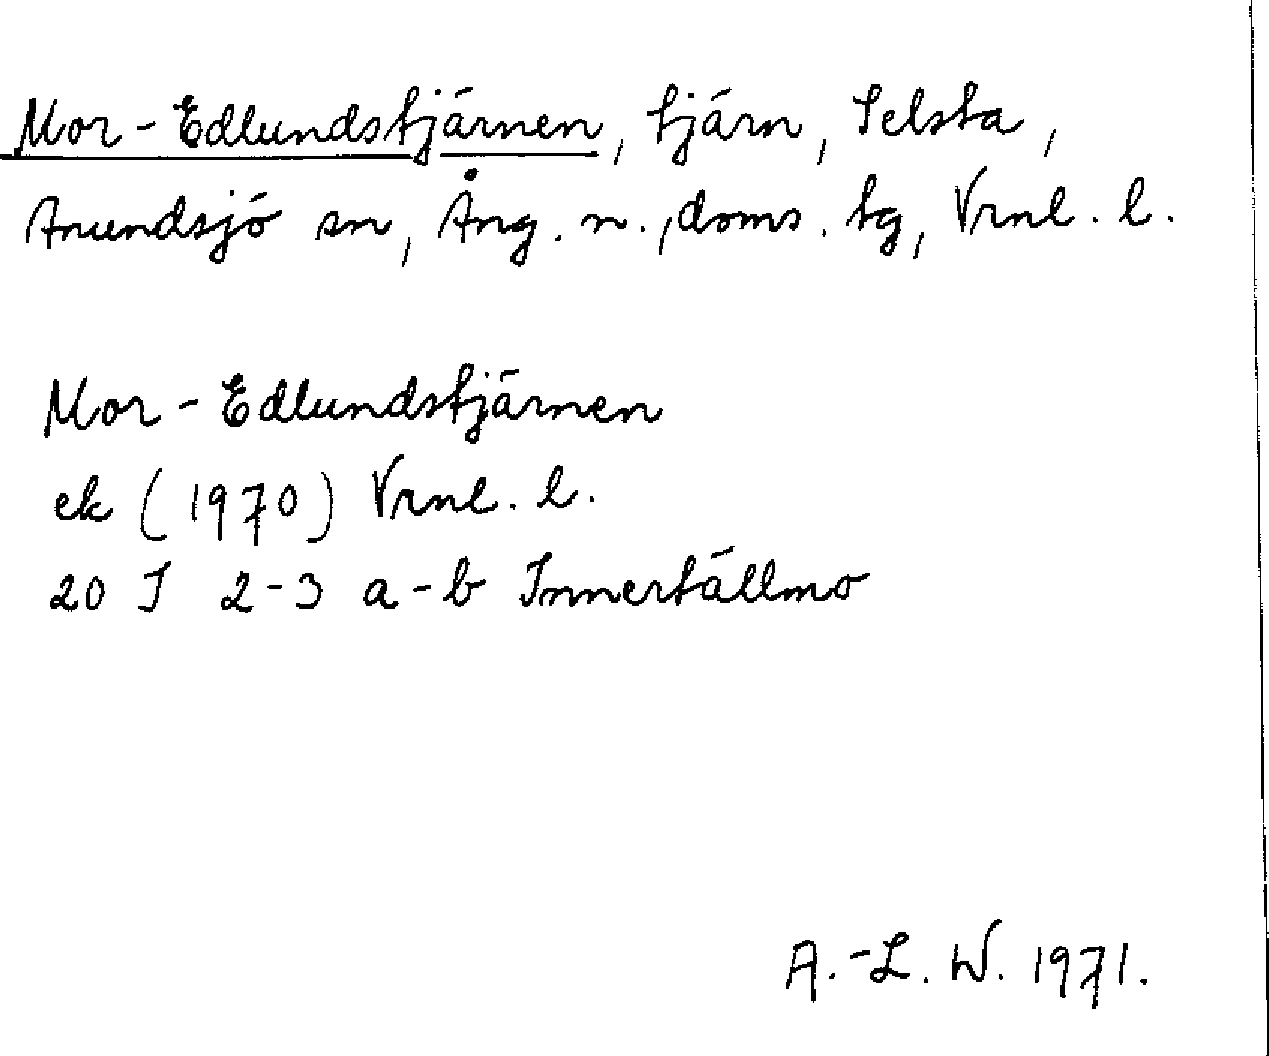 Mor-Edlundstjärnen, tjärn, Selsta,
Anundsjö sn, Ång. n., doms. tg, Vrnl. l.
Mor-Edlundstjärnen
ek (1970) Vrnl. l.
20 J 2-3 a-b Innertällmo
A.-L. W. 1971.